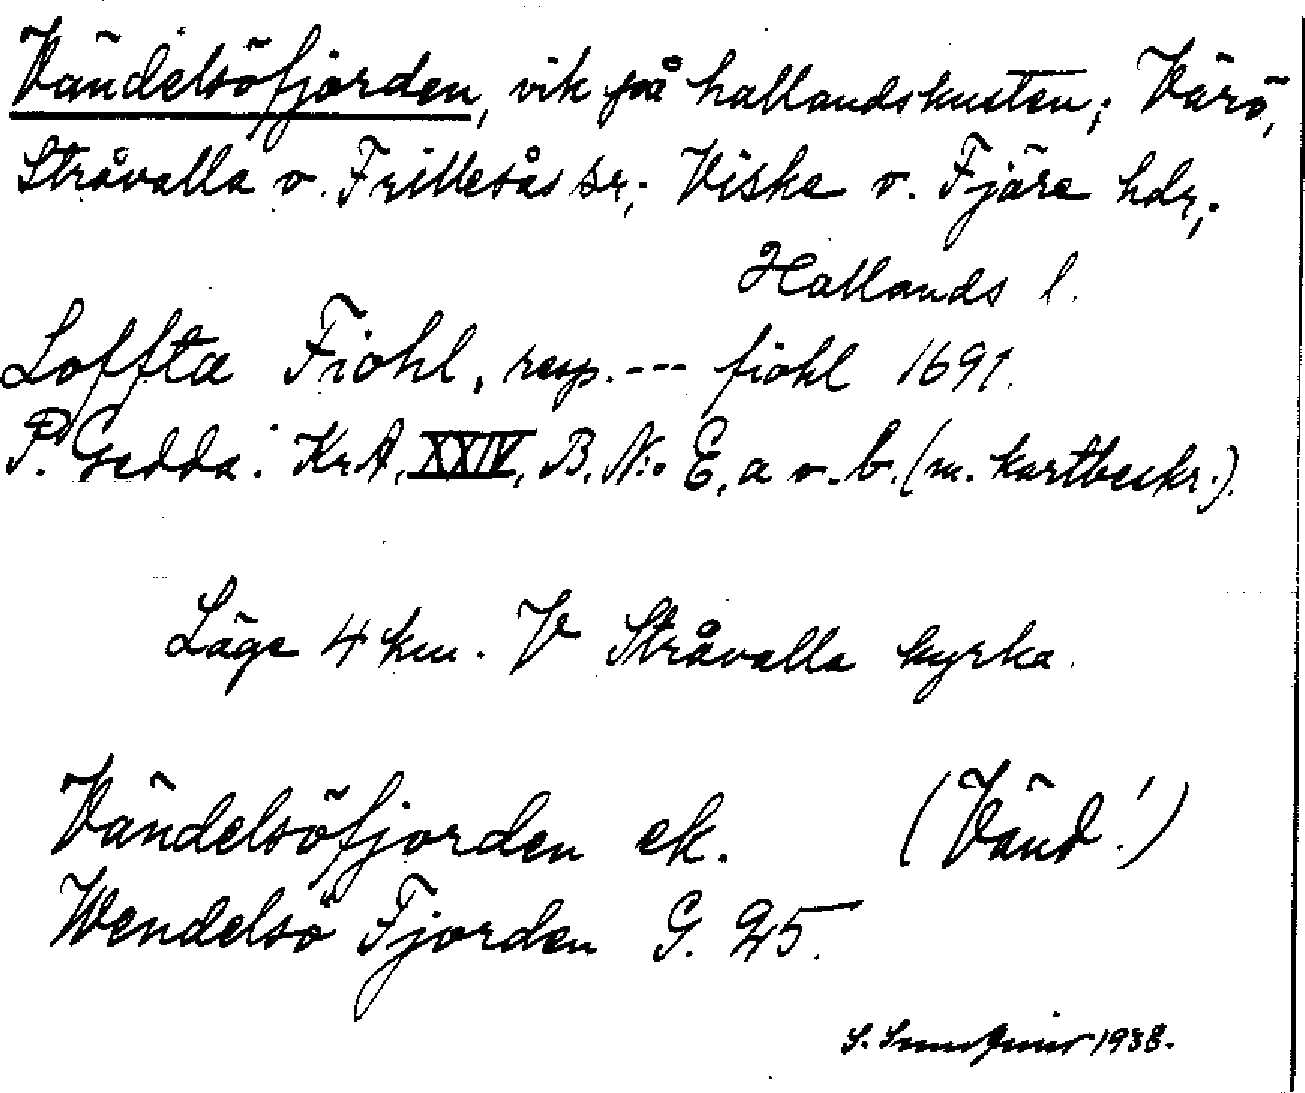 Vändelsöfjorden, vik på hallandskusten; Värö,
Stråvalla o. Frillesås sr; Viske o. Fjäre hdr,;
Hallands l.
Loffta Fiöhl, resp. --- fiöhl 1691.
P. Gedda: Kr.A. XXIV, B. N:o E, a o. b. (m. kartbeskr.).
Läge 4 km. V Stråvalla kyrka.
Vändelsöfjorden ek. (Vänd!)
Wendelsö Fjorden G. 25.
S. 1938.